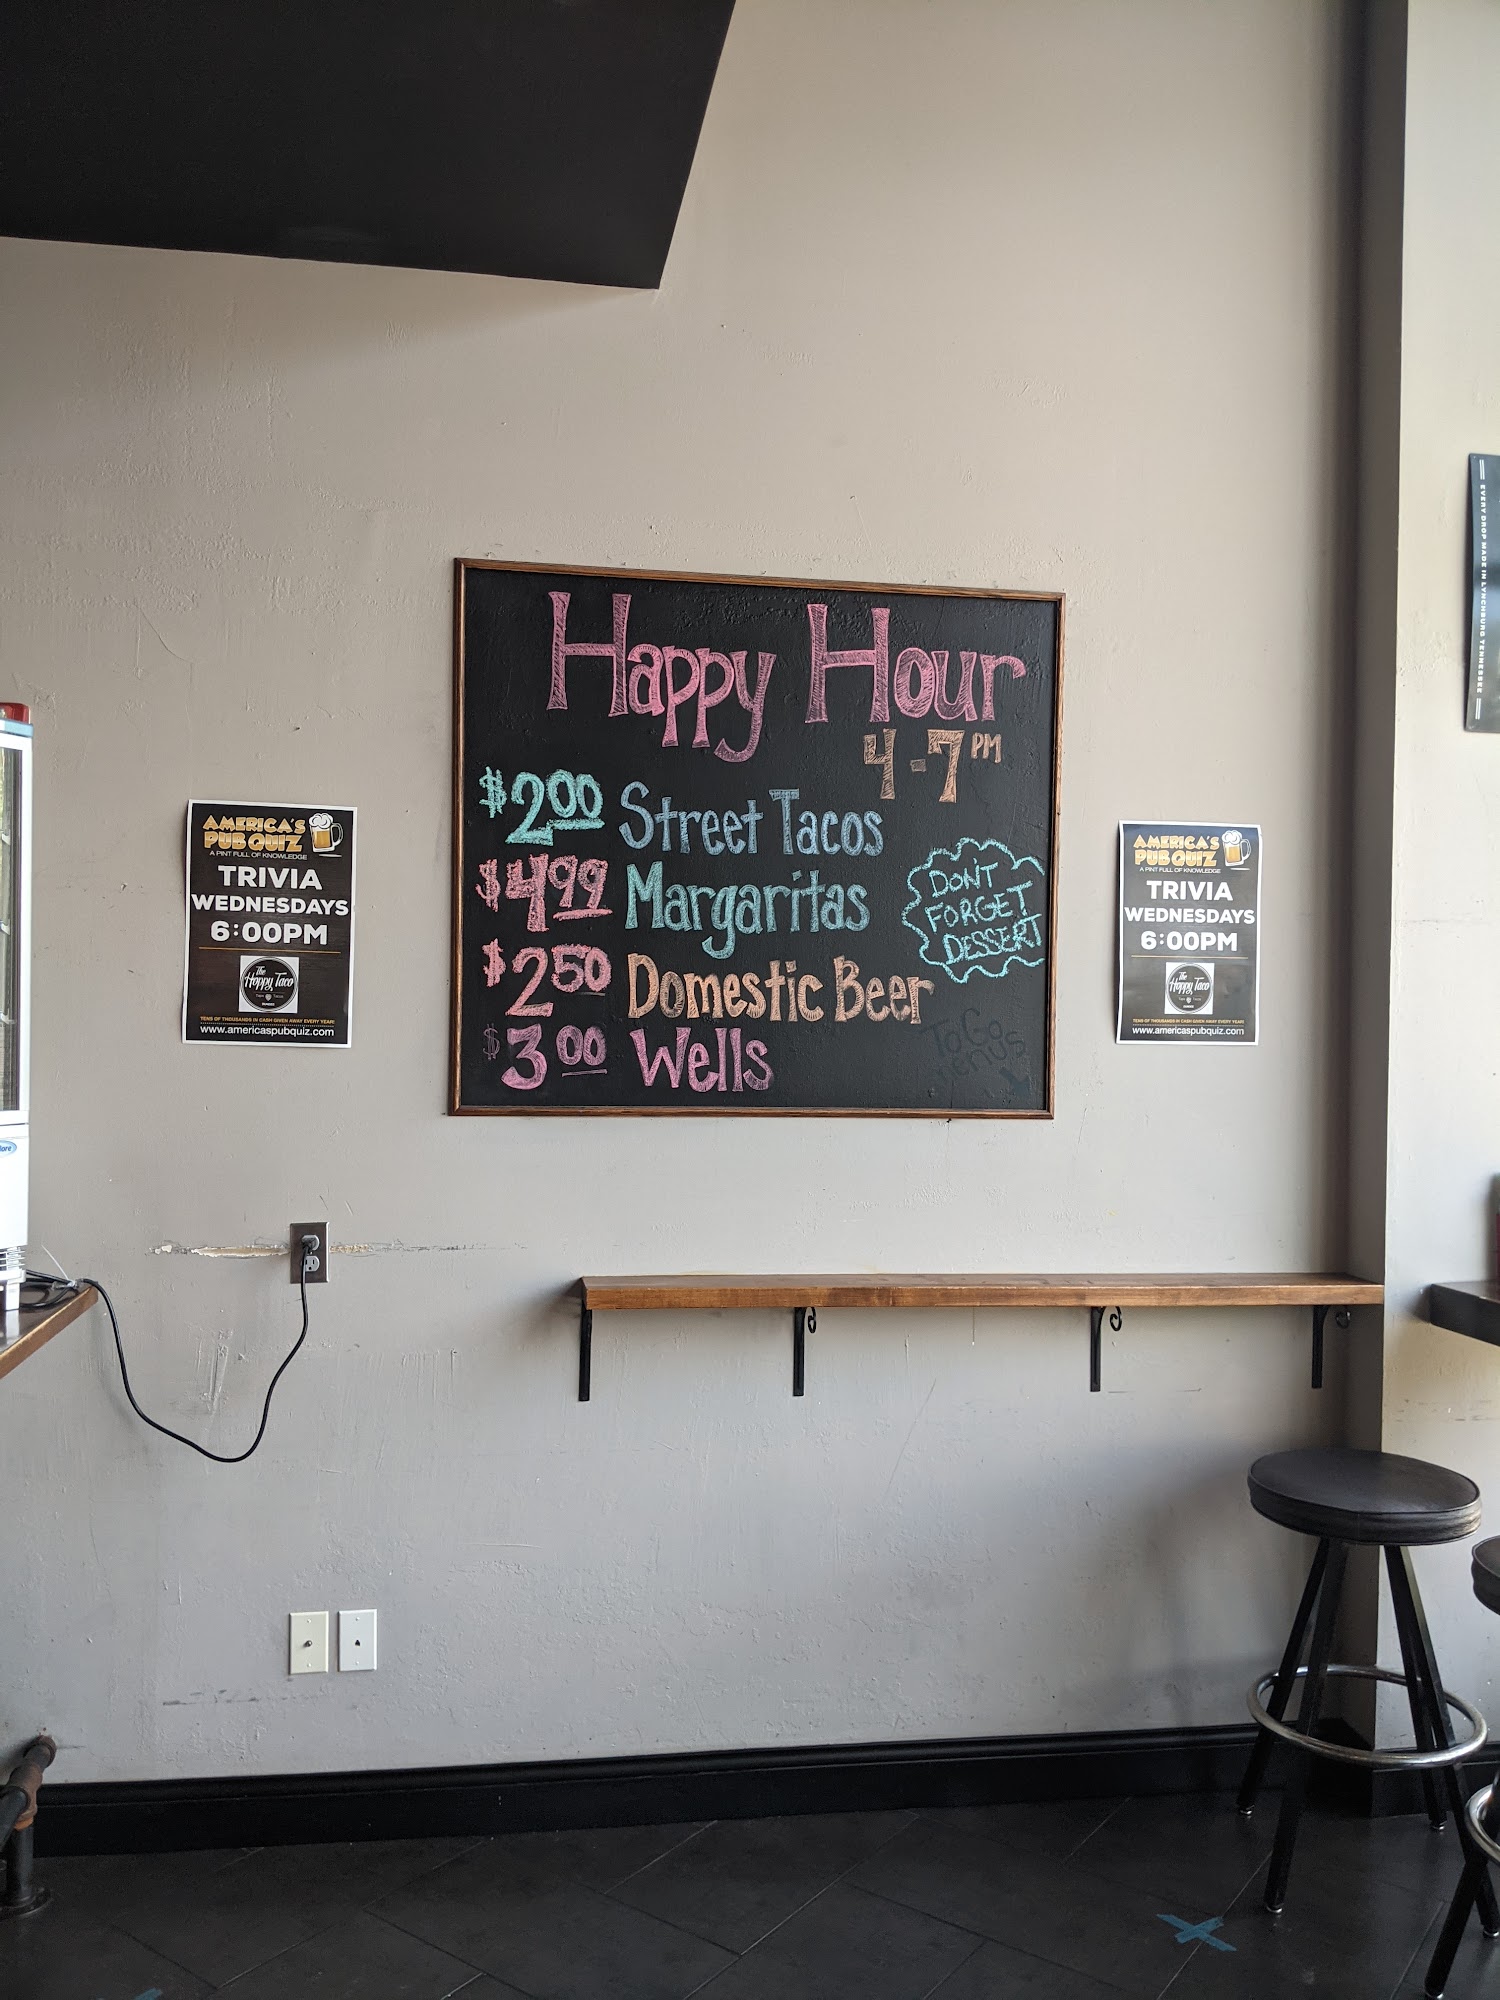 Happy Hour
4-7 PM
$2.00 Street Tacos
$4.99 Margaritas
$2.50 Domestic Beer
$3.00 Wells
DON'T
FORGET
DESSERT
To Go
Menus
AMERICA'S
PUB QUIZ
A PINT FULL OF KNOWLEDGE
TRIVIA
WEDNESDAYS
6:00PM
The
Hoppy Taco
TENS OF THOUSANDS IN CASH GIVEN AWAY EVERY YEAR!
www.americaspubquiz.com
AMERICA'S
PUB QUIZ
A PINT FULL OF KNOWLEDGE
TRIVIA
WEDNESDAYS
6:00PM
The
Hoppy Taco
TENS OF THOUSANDS IN CASH GIVEN AWAY EVERY YEAR!
www.americaspubquiz.com
EVERY DROP MADE IN LYNCHBURG TENNESSEE